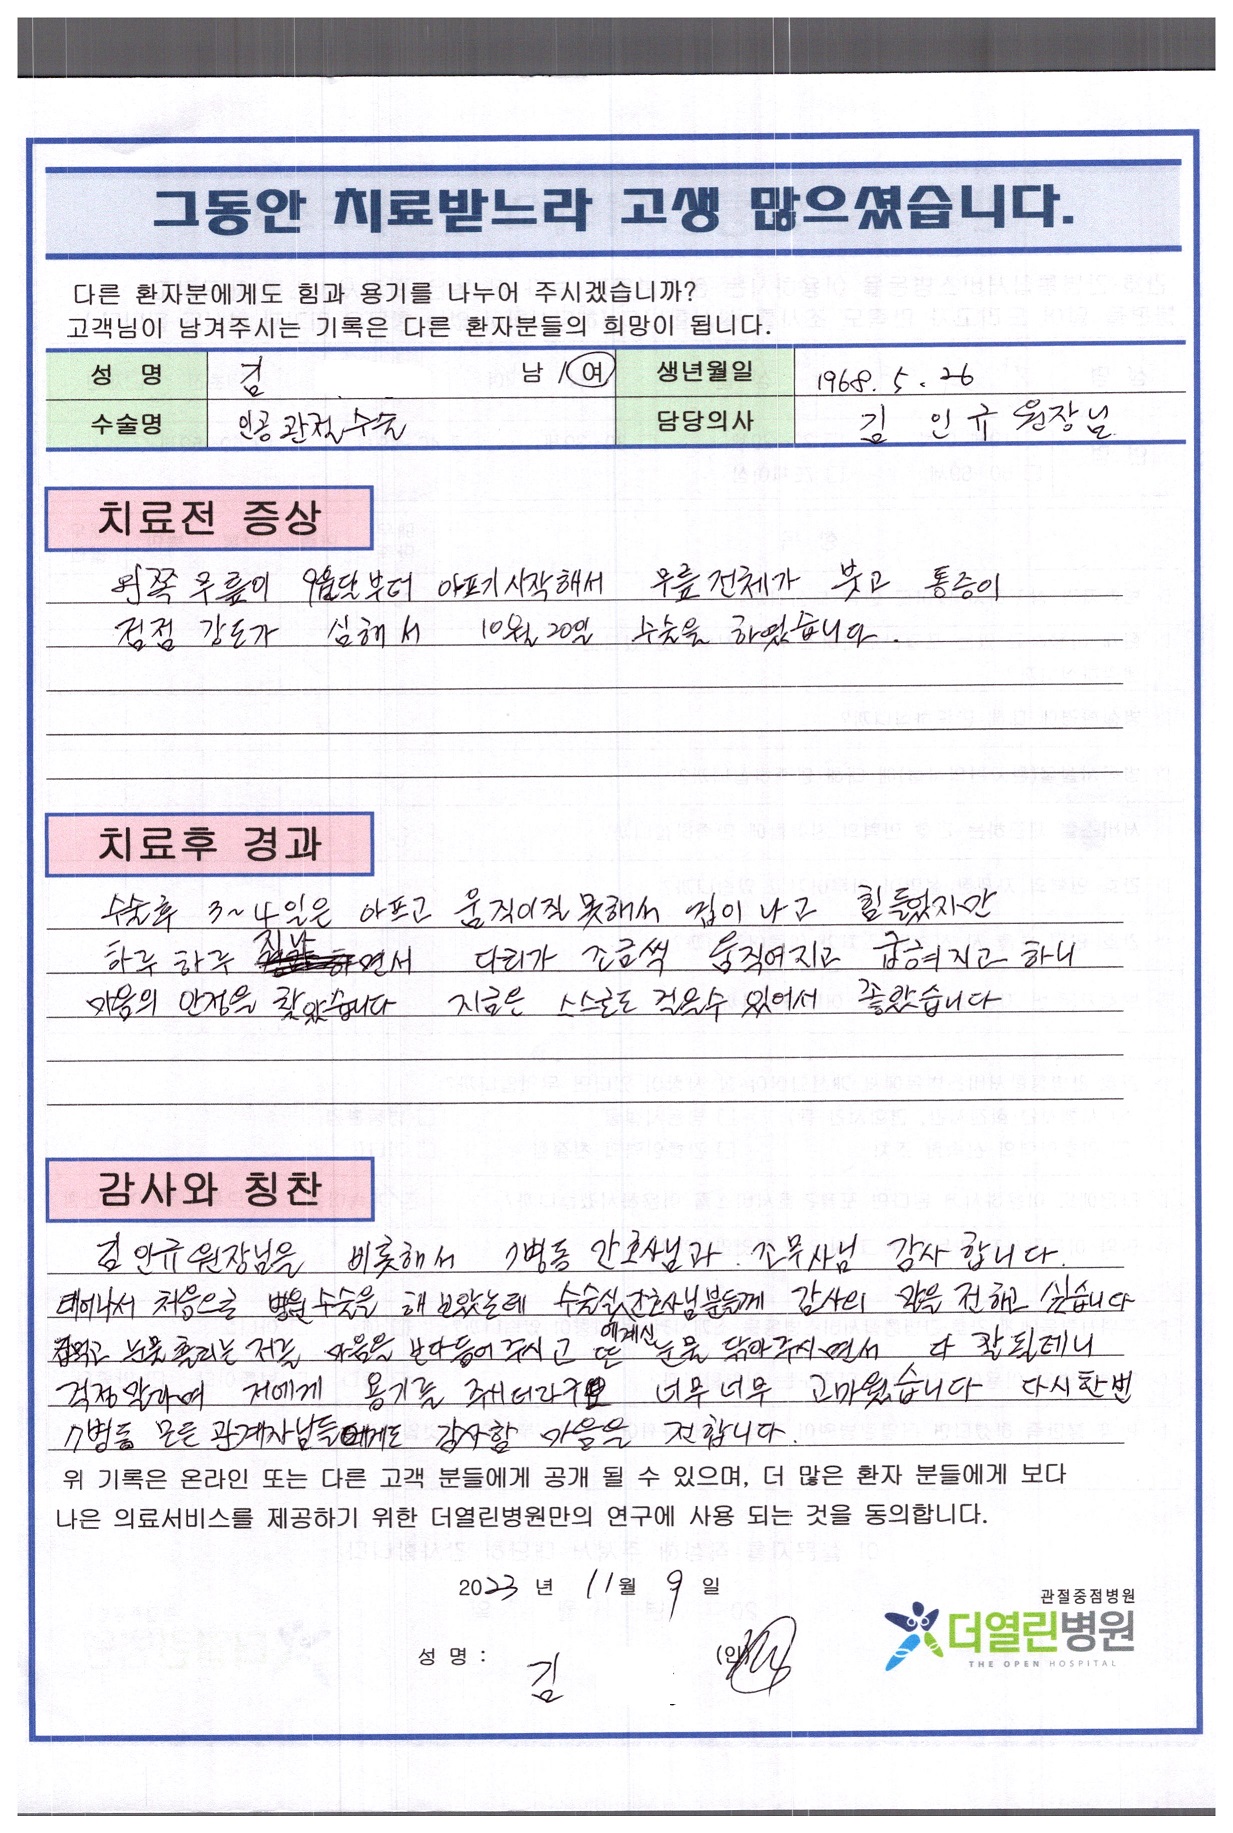 그동안 치료받느라 고생 많으셨습니다.
다른 환자분에게도 힘과 용기를 나누어 주시겠습니까?
고객님이 남겨주시는 기록은 다른 환자분들의 희망이 됩니다.
성 명 김 남 / 여 생년월일 1968. 5. 26
수술명 인공관절수술 담당의사 김 인규 원장님
치료전 증상
왼쪽 무릎이 9월달부터 아프기시작해서 무릎전체가 붓고 통증이
점점 강도가 심해서 10월 20일 수술을 하였습니다.
치료후 경과
수술후 3~4일은 아프고 움직이질 못해서 겁이 나고 힘들었지만
하루 하루 지나면서 다리가 조금씩 움직여지고 굽혀지고 하니
마음의 안정을 찾았습니다 지금은 스스로도 걸을수 있어서 좋았습니다
감사와 칭찬
김인규원장님을 비롯해서 7병동 간호사님과 조무사님 감사합니다.
태어나서 처음으로 병원수술을 해보았는데 수술실에계신 간호사님분들께 감사의 말을 전하고 싶습니다
겁먹고 눈물 흘리는 저를 마음을 받아들여주시고 또 눈물 닦아주시면서 다 잘될테니
걱정말라며 저에게 용기를 너무너무 고마웠습니다 다시한번
7병동 모든관계자님들에게도 감사할 마음을 전합니다.
위 기록은 온라인 또는 다른 고객 분들에게 공개 될 수 있으며, 더 많은 환자 분들에게 보다
나은 의료서비스를 제공하기 위한 더열린병원만의 연구에 사용 되는 것을 동의합니다.
2023 년 11월 9 일
성 명 : 김 (인)
관절중점병원
더열린병원
THE OPEN HOSPITAL